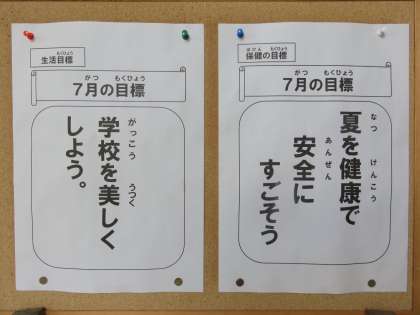 生活目標
もくひょう
がつ もくひょう
7月の目標
がっこう うつく
学校を美しく
しよう。
ほけん もくひょう
保健の目標
がつ もくひょう
7月の目標
なつ けんこう
夏を健康で
あんぜん
安全に
すごそう